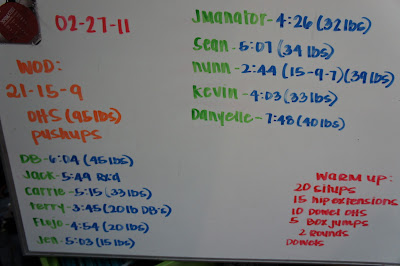 02-27-11
WOD:
21-15-9
OHS (95lbs)
pushups
DB-6:04 (45lbs)
Jack-5:49 RX'd
Carrie-5:15 (33lbs)
terry-3:45 (20lb DB's)
Flojo-4:54 (20lbs)
Jen-5:03 (15lbs)
Jmanator-4:26 (32lbs)
Sean-5:07 (39lbs)
nunn-2:44 (15-9-7) (39lbs)
Kevin-4:03 (33lbs)
Danyelle-7:48 (40lbs)
Warm up:
20 Situps
15 hip extensions
10 Dowel OHS
5 Box jumps
2 Rounds
Dowels